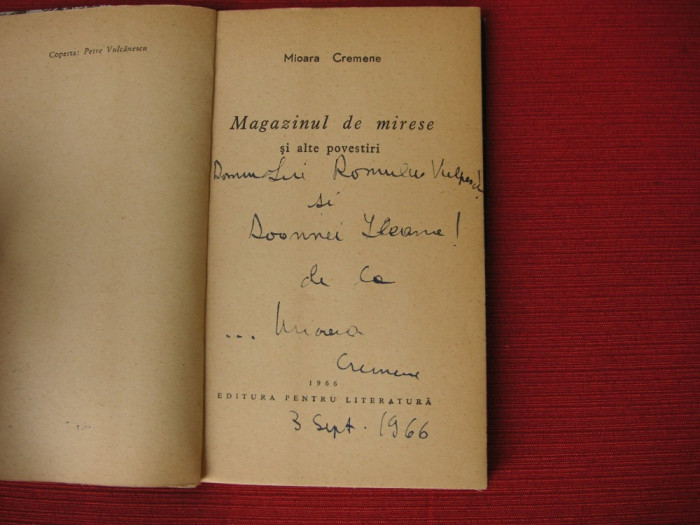 Coperta: Petre Vulcănescu
Mioara Cremene
Magazinul de mirese
și alte povestiri
Domnului Romulus Vulpescu
si
Doamnei Ileana!
de la
... Mioara
Cremene
1966
EDITURA PENTRU LITERATURĂ
3 Sept. 1966